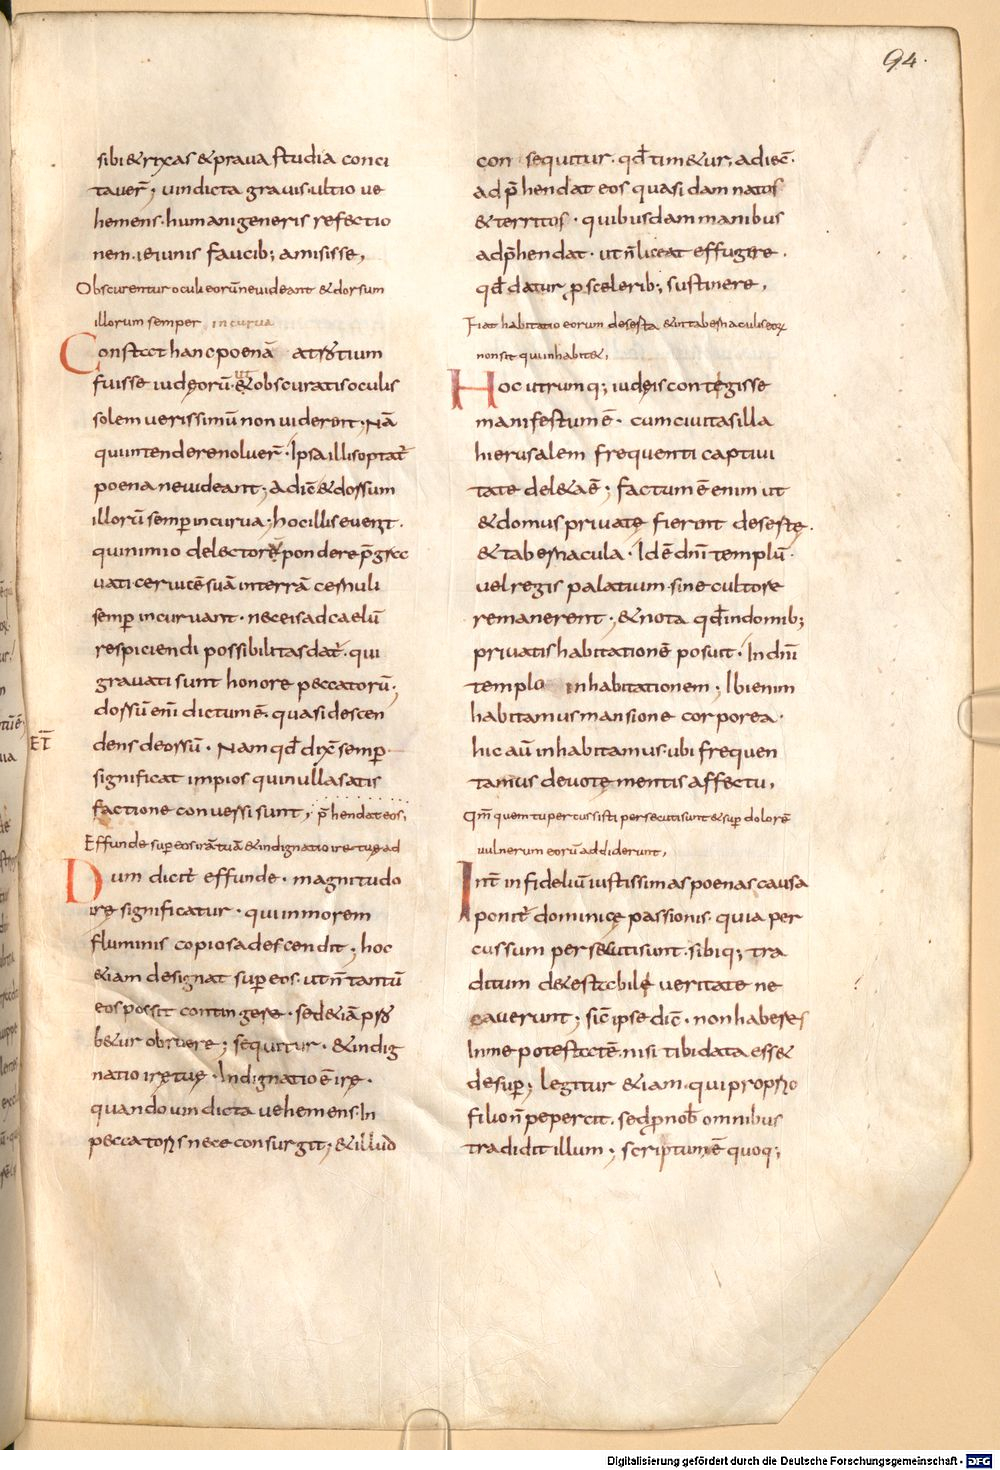 94.
sibi & rixas & praua studia conci
tauer̄; uindicta grauis. ultio ue
hemens. humani generis refectio
nem. ieiunis faucib; amisisse,
Obscurentur oculi eorū ne uideant & dorsum
illorum semper incurua
Constat hanc poenā
fuisse iudęorū. ut & obscuratis oculis
solem uerissimū non uiderent; Nā
qui intendere noluer̄. Ipsa illis optat̄
poena ne uideant; Adiec̄ & dossum
illorū semp̄ incurua; hoc illis euenit.
quinimio delectorē pondere p̄graa
uati ceruicē suā in terrā cernuli
semp̄ incuruant. nec eis ad caelū
respiciendi possibilitas dat̄. qui
grauati sunt honore peccatorū;
dossū enī dictum ē. quasi descen
dens deossū. Nam qđ dix̄ semp̄
ET̄
significat impios qui nulla satis
factione conuersi sunt, p̄hendat eos;
Effunde sup̄ eos irā tuā & indignatio irę tuę ad
Dum dicit effunde. magnitudo
irę significatur. qui in morem
fluminis copiosa descendit; hoc
&iam designat sup̄ eos. ut n̄ tantū
eos possit contingere. sed &iā
b&ur obruere; sequitur. & indig
natio irę tuę. Indignatio ē irę.
quando uindicta uehemens. In
peccatoris nece consurgit; & illud
con sequitur. qđ tim&ur; adiec̄.
adp̄hendat eos quasi damnatos
& territos. quibusdam manibus
adp̄hendat. ut n̄ liceat effugere.
qđ datur p̱ sceleribꝫ sustinere,
Fiat habitatio eorum deserta & in tabernaculis eoꝝ
non sit qui inhabit&,
Hoc utrumq; iudęis contegisse
manifestum ē. cum ciuitas illa
hierusalem frequenti captiui
tate delea ē; factum ē enim ut
& domus priuatę fierent desertę.
& tabernacula. Id ē dn̄i templū.
uel regis palatium. sine cultore
remanerent; & nota qđ in domib;
priuatis habitationē posuit. In dn̄i
templo inhabitationem; Ibi enim
habitamus mansione corporea.
hic aū inhabitamus. ubi frequen
tamus deuotę mentis affectu,
Qm̄ quem tu percussisti persecuti sunt & sup̄ dolorē
uulnerum eorū addiderunt,
Int̄ infideliū iustissimas poenas causa
ponit̄ dominicę passionis. quia per
cussum persecuti sunt. sibiq; tra
ditum detestabile ueritate ne
cauerunt; sic̄ ipse dic̄. non haberes
In me potestatē. nisi tibi data ess&
desup̄; legitur &iam. qui proprio
filio n̄ pepercit. sed p̱ nob̄ omnibus
tradidit illum; scriptum ē quoq;
Digitalisierung gefördert durch die Deutsche Forschungsgemeinschaft - DFG